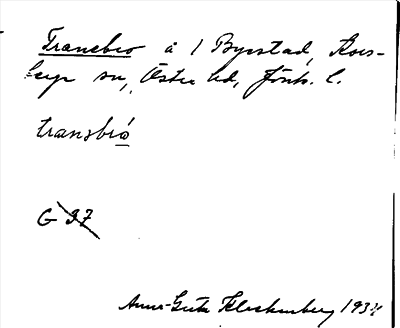 Tranebro å 1 Byestad, Kors-
berga sn, Östra hd, Jönk. l.
transbro
G 37
Anna-Greta Kleckenberg 193